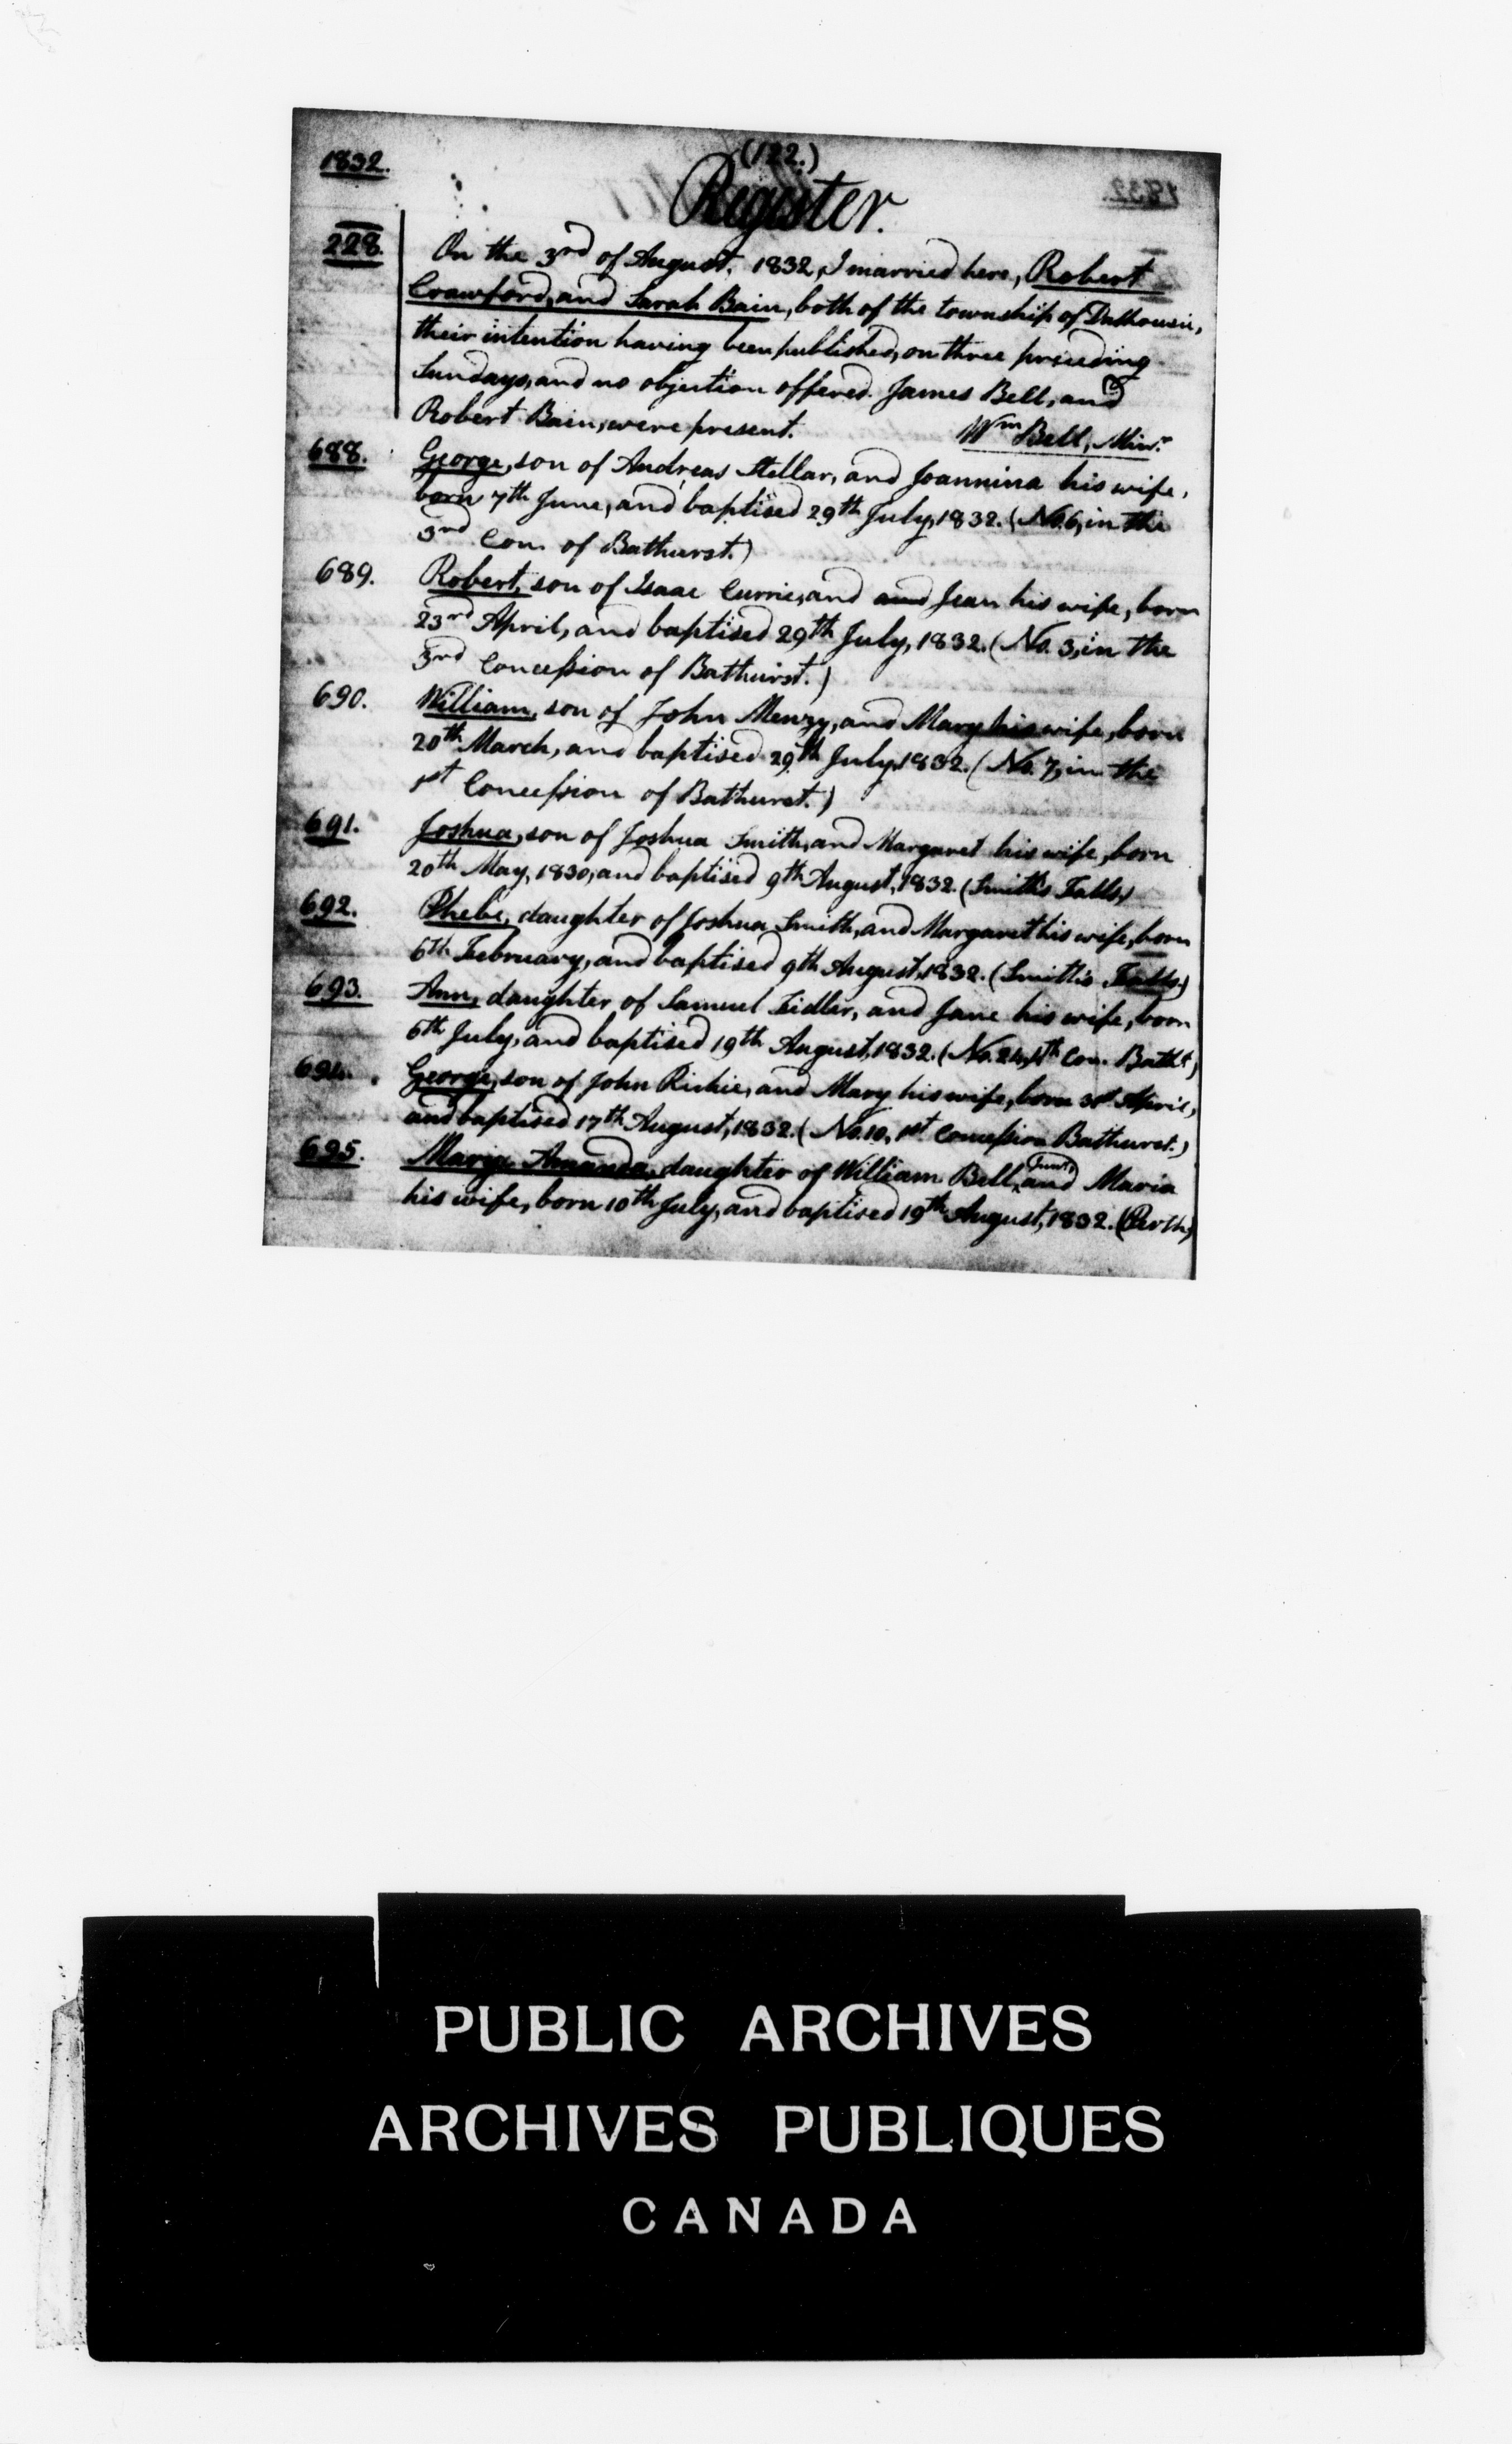 1832.
(122.)
Register.
228. On the 3rd of August, 1832, I married here, Robert
Crawford, and Sarah Bain, both of the township of Dalhousie,
their intention having been published, on three preceding
Sundays, and no objection offered. James Bell, and
Robert Bain, were present. Wm Bell, Minr.
688. George, son of Andreas Stellar, and Joannina his wife,
born 7th June, and baptised 29th July, 1832. (No. 6, in the
3rd Con. of Bathurst.)
689. Robert, son of Isaac Currie, and and Jean his wife, born
23rd April, and baptised 29th July, 1832. (No. 3, in the
3rd Concession of Bathurst.)
690. William, son of John Menzy, and Mary his wife, born
20th March, and baptised 29th July, 1832. (No. 7, in the
1st Concession of Bathurst.)
691. Joshua, son of Joshua Smith, and Margaret his wife, born
20th May, 1830, and baptised 9th August, 1832. (Smith's Falls.)
692. Phebe, daughter of Joshua Smith, and Margaret his wife, born
6th February, and baptised 9th August, 1832. (Smith's Falls.)
693. Ann, daughter of Samuel Fidler, and Jane his wife, born
6th July, and baptised 19th August, 1832. (No. 24, 4th Con. Batht.)
694. George, son of John Richie, and Mary his wife, born April,
and baptised 17th August, 1832. (No. 10, 1st Concession Bathurst.)
695. Maria Amanda, daughter of William Bell, Junr. and Maria
his wife, born 10th July, and baptised 19th August, 1832. (Perth.)
PUBLIC ARCHIVES
ARCHIVES PUBLIQUES
CANADA